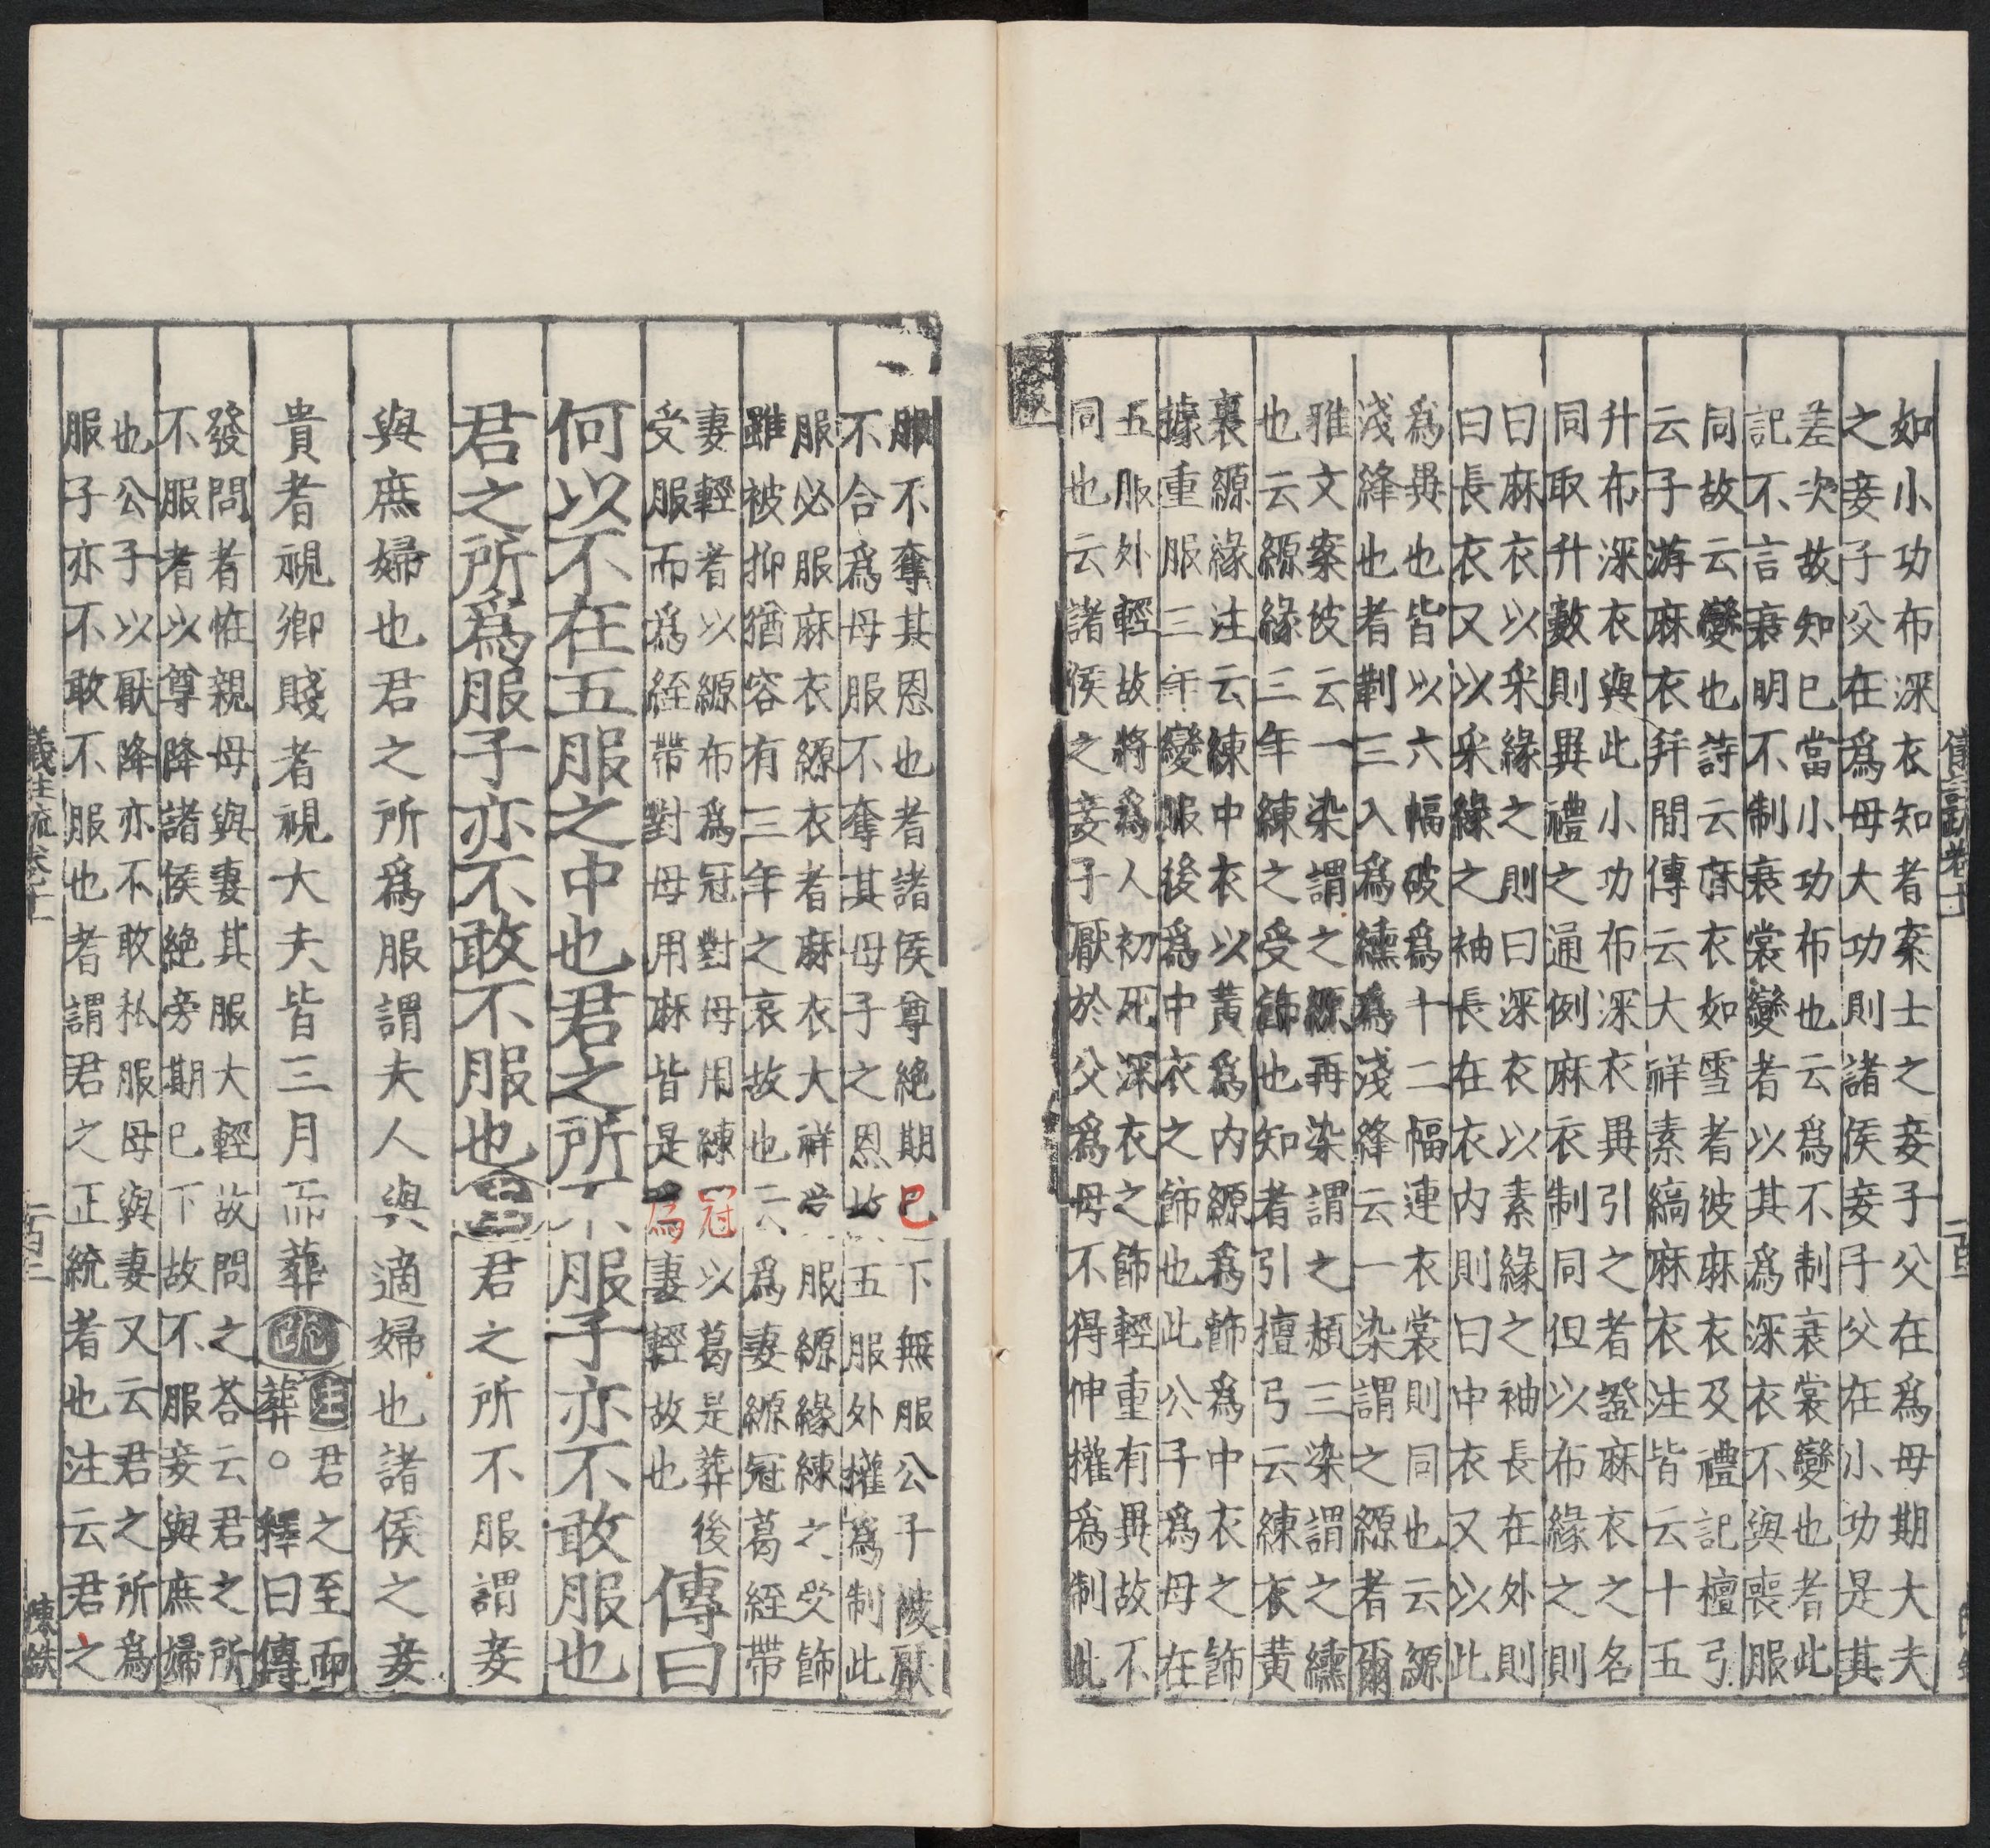 如小功布深衣知者案士之妾子父在爲母期大夫
之妾子父在爲母大功則諸侯妾子父在小功是其
差次故知已當小功布也云爲不制衰裳變也者此
記不言衰明不制衰裳變者以其爲深衣不與喪服
同故云變也詩云麻衣如雪者彼麻衣及禮記檀弓
云子游麻衣并間傳云大祥素縞麻衣注皆云十五
升布深衣與此小功布深衣異引之者證麻衣之名
同取升數則異禮之通例麻衣制同但以布緣之則
曰麻衣以采緣之則曰深衣以素緣之袖長在外則
曰長衣又以采緣之袖長在衣内則曰中衣又以此
爲異也皆以六幅破爲十二幅連衣裳則同也云縓
淺絳也者對三入爲纁爲淺絳云一染謂之縓者爾
雅文案彼云一染謂之縓再染謂之赬三染謂之纁
也云縓緣三年練之受飾也知者引檀弓云練衣黄
裏縓緣注云練中衣以黄爲内縓爲飾爲中衣之飾
據重服三年變服後爲中衣之飾也此公子爲母在
五服外輕故將爲人初死深衣之飾輕重有異故不
同也云諸侯之妾子厭於父爲母不得伸權爲制此
服不奪其恩也者諸侯尊絶期已下無服公子被厭
不合爲母服不奪其母子之恩故五服外權爲制此
服必服麻衣縓衣者麻衣大祥
服縓緣練之受飾
雖被抑猶容有三年之哀故也云爲妻縓冠葛絰帶
妻輕者以縓布爲冠對母用練冠以葛是葬後
受服而爲絰帶對母用麻皆是爲妻輕故也
傳曰
何以不在五服之中也君之所不服子亦不敢服也
君之所爲服子亦不敢不服也注君之所不服謂妾
與庶婦也君之所爲服謂夫人與適婦也諸侯之妾
貴者視卿賤者視大夫皆三月而葬疏
注君之至而
葬○釋曰傳
發問者恠親母與妻其服大輕故問之荅云君之所
不服者以尊降諸侯絶旁期已下故不服妾與庶婦
也公子以厭降亦不敢私服母與妻又云君之所爲
服子亦不敢不服也者謂君之正統者也注云君之
陳鉄